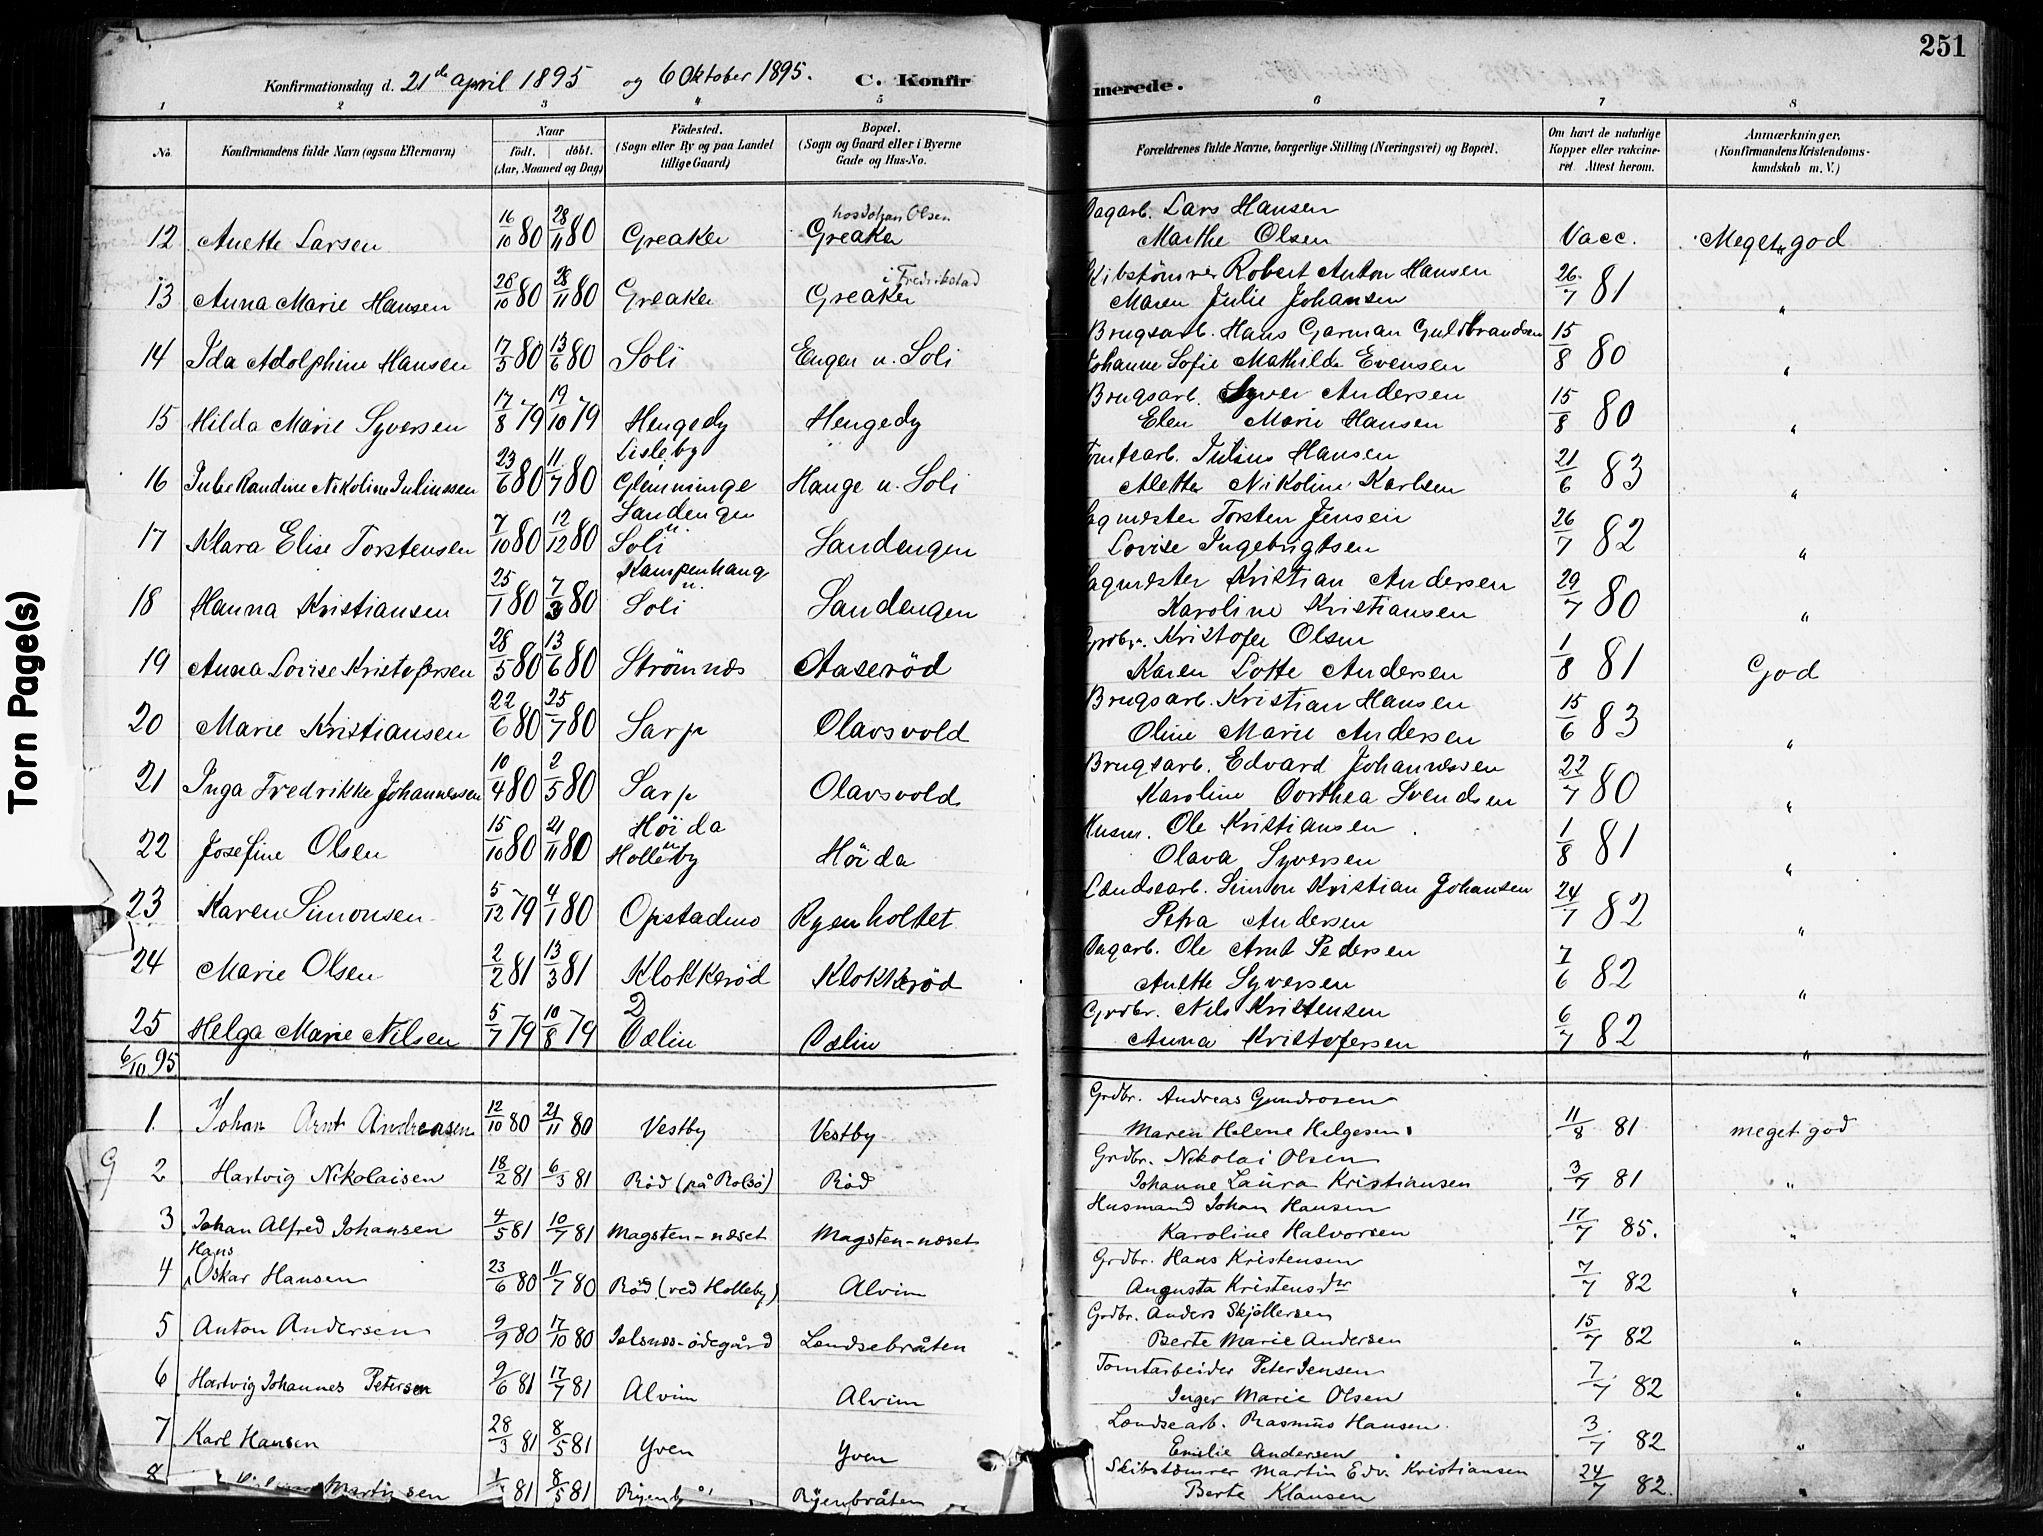 251
Konfirmationsdag d. 21de april 1895 og 6 Oktober 1895. C. Konfirmerede.
1 2 3 4 5 6 7 8
No.
Konfirmandens fulde Navn (ogsaa Efternavn)
Naar
født. døbt.
(Aar, Maaned og Dag)
Fødested.
(Sogn eller By og paa Landet
tillige Gaard)
Bopæl.
(Sogn og Gaard eller i Byerne
Gade og Hus-No.
Forældrenes fulde Navne, borgerlige Stilling (Næringsvei) og Bopæl.
Om havt de naturlige
Kopper eller vakcine-
ret Attest herom.
Anmærkninger.
(Konfirmandens Kristendoms-
kundskab m. V.)
hos Johan Olsen
Dagarb. Lars Hansen
12 Anette Larsen 16/10 80 28/11 80 Greaker Greaker Marthe Olsen Vacc. Meget god
i Fredrikstad
Skibstömrer Robert Anton Hansen
13 Anna Marie Hansen 28/10 80 28/11 80 Greaker Greaker Maren Julie Johansen 26/7 81 "
Brugsarb. Hans Garman Guldbrandsen
14 Ida Adolphine Hansen 17/5 80 13/6 80 Soli Engen u. Soli Johanne Sofie Mathilde Evensen 15/8 80 "
Brugsarb. Syver Andersen
15 Hilda Marie Syversen 17/8 79 19/10 79 Hengedy Hengedy Elen Marie Hansen 15/8 80 "
Lisleby
Tomtearb. Julius Hansen
16 Julie Randine Nikoline Juliussen 23/6 80 11/7 80 Glemminge Hauge u. Soli Alette Nikoline Karlsen 21/6 83 "
Sandengen
Sagmester Torsten Jensen
17 Klara Elise Torstensen 7/10 80 12/12 80 u. Soli Sandengen Lovise Ingebrigtsen 26/7 82 "
Kampenhaug
Sagmester Kristian Andersen
18 Hanna Kristiansen 25/1 80 7/3 80 u. Soli Sandengen Karoline Kristiansen 29/7 80 "
Grdbr. Kristofer Olsen
19 Anna Lovise Kristofersen 28/5 80 13/6 80 Strömnes Aaseröd Karen Lotte Andersen 1/8 81 God
Brugsarb. Kristian Hansen
20 Marie Kristiansen 22/6 80 25/7 80 Sarp Olavsvold Oline Marie Andersen 15/6 83 "
Brugsarb. Edvard Johannessen
21 Inga Fredrikke Johannessen 10/4 80 2/5 80 Sarp Olavsvold Karoline Dorthea Svendsen 22/7 80 "
Höida
Husm. Ole Kristiansen
22 Josefine Olsen 15/10 80 21/11 80 u Holleby Höida Olava Syversen 1/8 81 "
Lændsearb. Simon Kristian Johansen
23 Karen Simonsen 5/12 79 4/1 80 Opstadmo Ryenholtet Petra Andersen 24/7 82 "
Dagarb. Ole Arnt Pedersen
24 Marie Olsen 2/2 81 13/3 81 Klokkeröd Klokkeröd Anette Syversen 7/6 82 "
Grdbr. Nils Kristensen
25 Helga Marie Nilsen 5/7 79 10/8 79 Ödelin Anna Kristofersen 6/7 82 "
6/10 95
Grdbr. Andreas Gundrosen
1. Johan Arnt Andreasen 12/10 80 21/11 80 Vestby Vestby Maren Helene Helgesen 11/8 81 meget god
Grdbr. Nikolai Olsen
2 Hartvig Nikolaisen 18/2 81 6/3 81 Röd (på Rolsö) Röd Johanne Laura Kristiansen 3/7 81 "
Husmand Johan Hansen
3 Johan Alfred Johansen 4/5 81 10/7 81 Magsten-næset Magsten-næset Karoline Halvorsen 17/7 85. "
Hans
Grdbr. Hans Kristensen
4 Oskar Hansen 23/6 80 11/7 80 Röd (ved Holleby) Alvim Augusta Kristensdtr 7/7 82 "
Grdbr. Anders Skjöllersen
5 Anton Andersen 9/9 80 17/10 80 Jelsnes-ödegård Lendsebråten Berte Marie Andersen 15/7 82 "
Tomtarbeider Peter Jensen
6 Hartvig Johannes Petersen 9/6 81 17/7 81 Alvim Alvim Inger Marie Olsen 7/7 82 "
Lendsearb. Rasmus Hansen
7. Karl Hansen 28/3 81 8/5 81 Yven Yven Emilie Andersen 3/7 82 "
Skibstömrer Martin Edv. Kristiansen
8 Martinsen 81 8/5 81 Ryenbråten Berte Klausen 24/7 82. "
Torn Page(s)